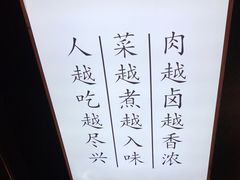 肉越卤越香浓
菜越煮越入味
人越吃越尽兴